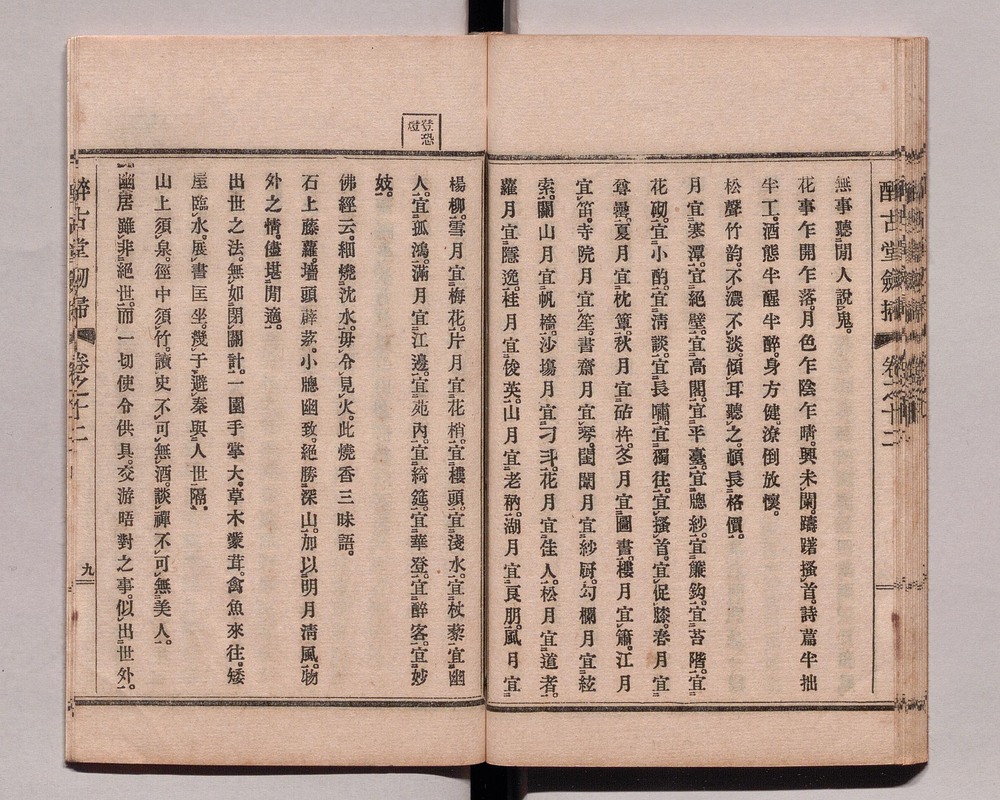 醉古堂劍掃 卷之十二
無事聽閒人說鬼。
花事乍開乍落。月色乍陰乍晴。興未闌。躊躇搔首。詩篇半拙
半工。酒態半醒半醉。身方健。潦倒放懷。
松聲竹韵。不濃不淡。傾耳聽之。頓長格價。
月宜寒潭。宜絕壁。宜高閣。宜平臺。宜牕紗。宜簾鈎。宜苔階。宜
花砌。宜小酌。宜清談。宜長嘯。宜獨往。宜搔首。宜促膝。春月宜
尊罍。夏月宜枕簟。秋月宜砧杵。冬月宜圖書。樓月宜簫。江月
宜笛。寺院月宜笙。書齋月宜琴。閨闌月宜紗厨。勾欄月宜絃
索。關山月宜帆檣。沙塲月宜刁斗。花月宜佳人。松月宜道者。
蘿月宜隱逸。桂月宜俊英。山月宜老衲。湖月宜良朋。風月宜
登恐
燈
楊柳。雪月宜梅花。片月宜花梢。宜樓頭。宜淺水。宜杖藜。宜幽
人。宜孤鴻。滿月宜江邊。宜苑內。宜綺筵。宜華登。宜醉客。宜妙
妓。
佛經云。細燒沈水。毋令見火。此燒香三昧語。
石上藤蘿。墻頭薜荔。小牕幽致。絕勝深山。加以明月淸風。物
外之情。儘堪閒適。
出世之法。無如閉關。計一園手掌大。草木蒙茸。禽魚來往。矮
屋臨水。展書匡坐。幾于避秦。與人世隔。
山上須泉。徑中須竹。讀史不可無酒。談禪不可無美人。
幽居雖非絕世。而一切使令供具。交游晤對之事。似出世外。
醉古堂劍掃 卷之十二 九